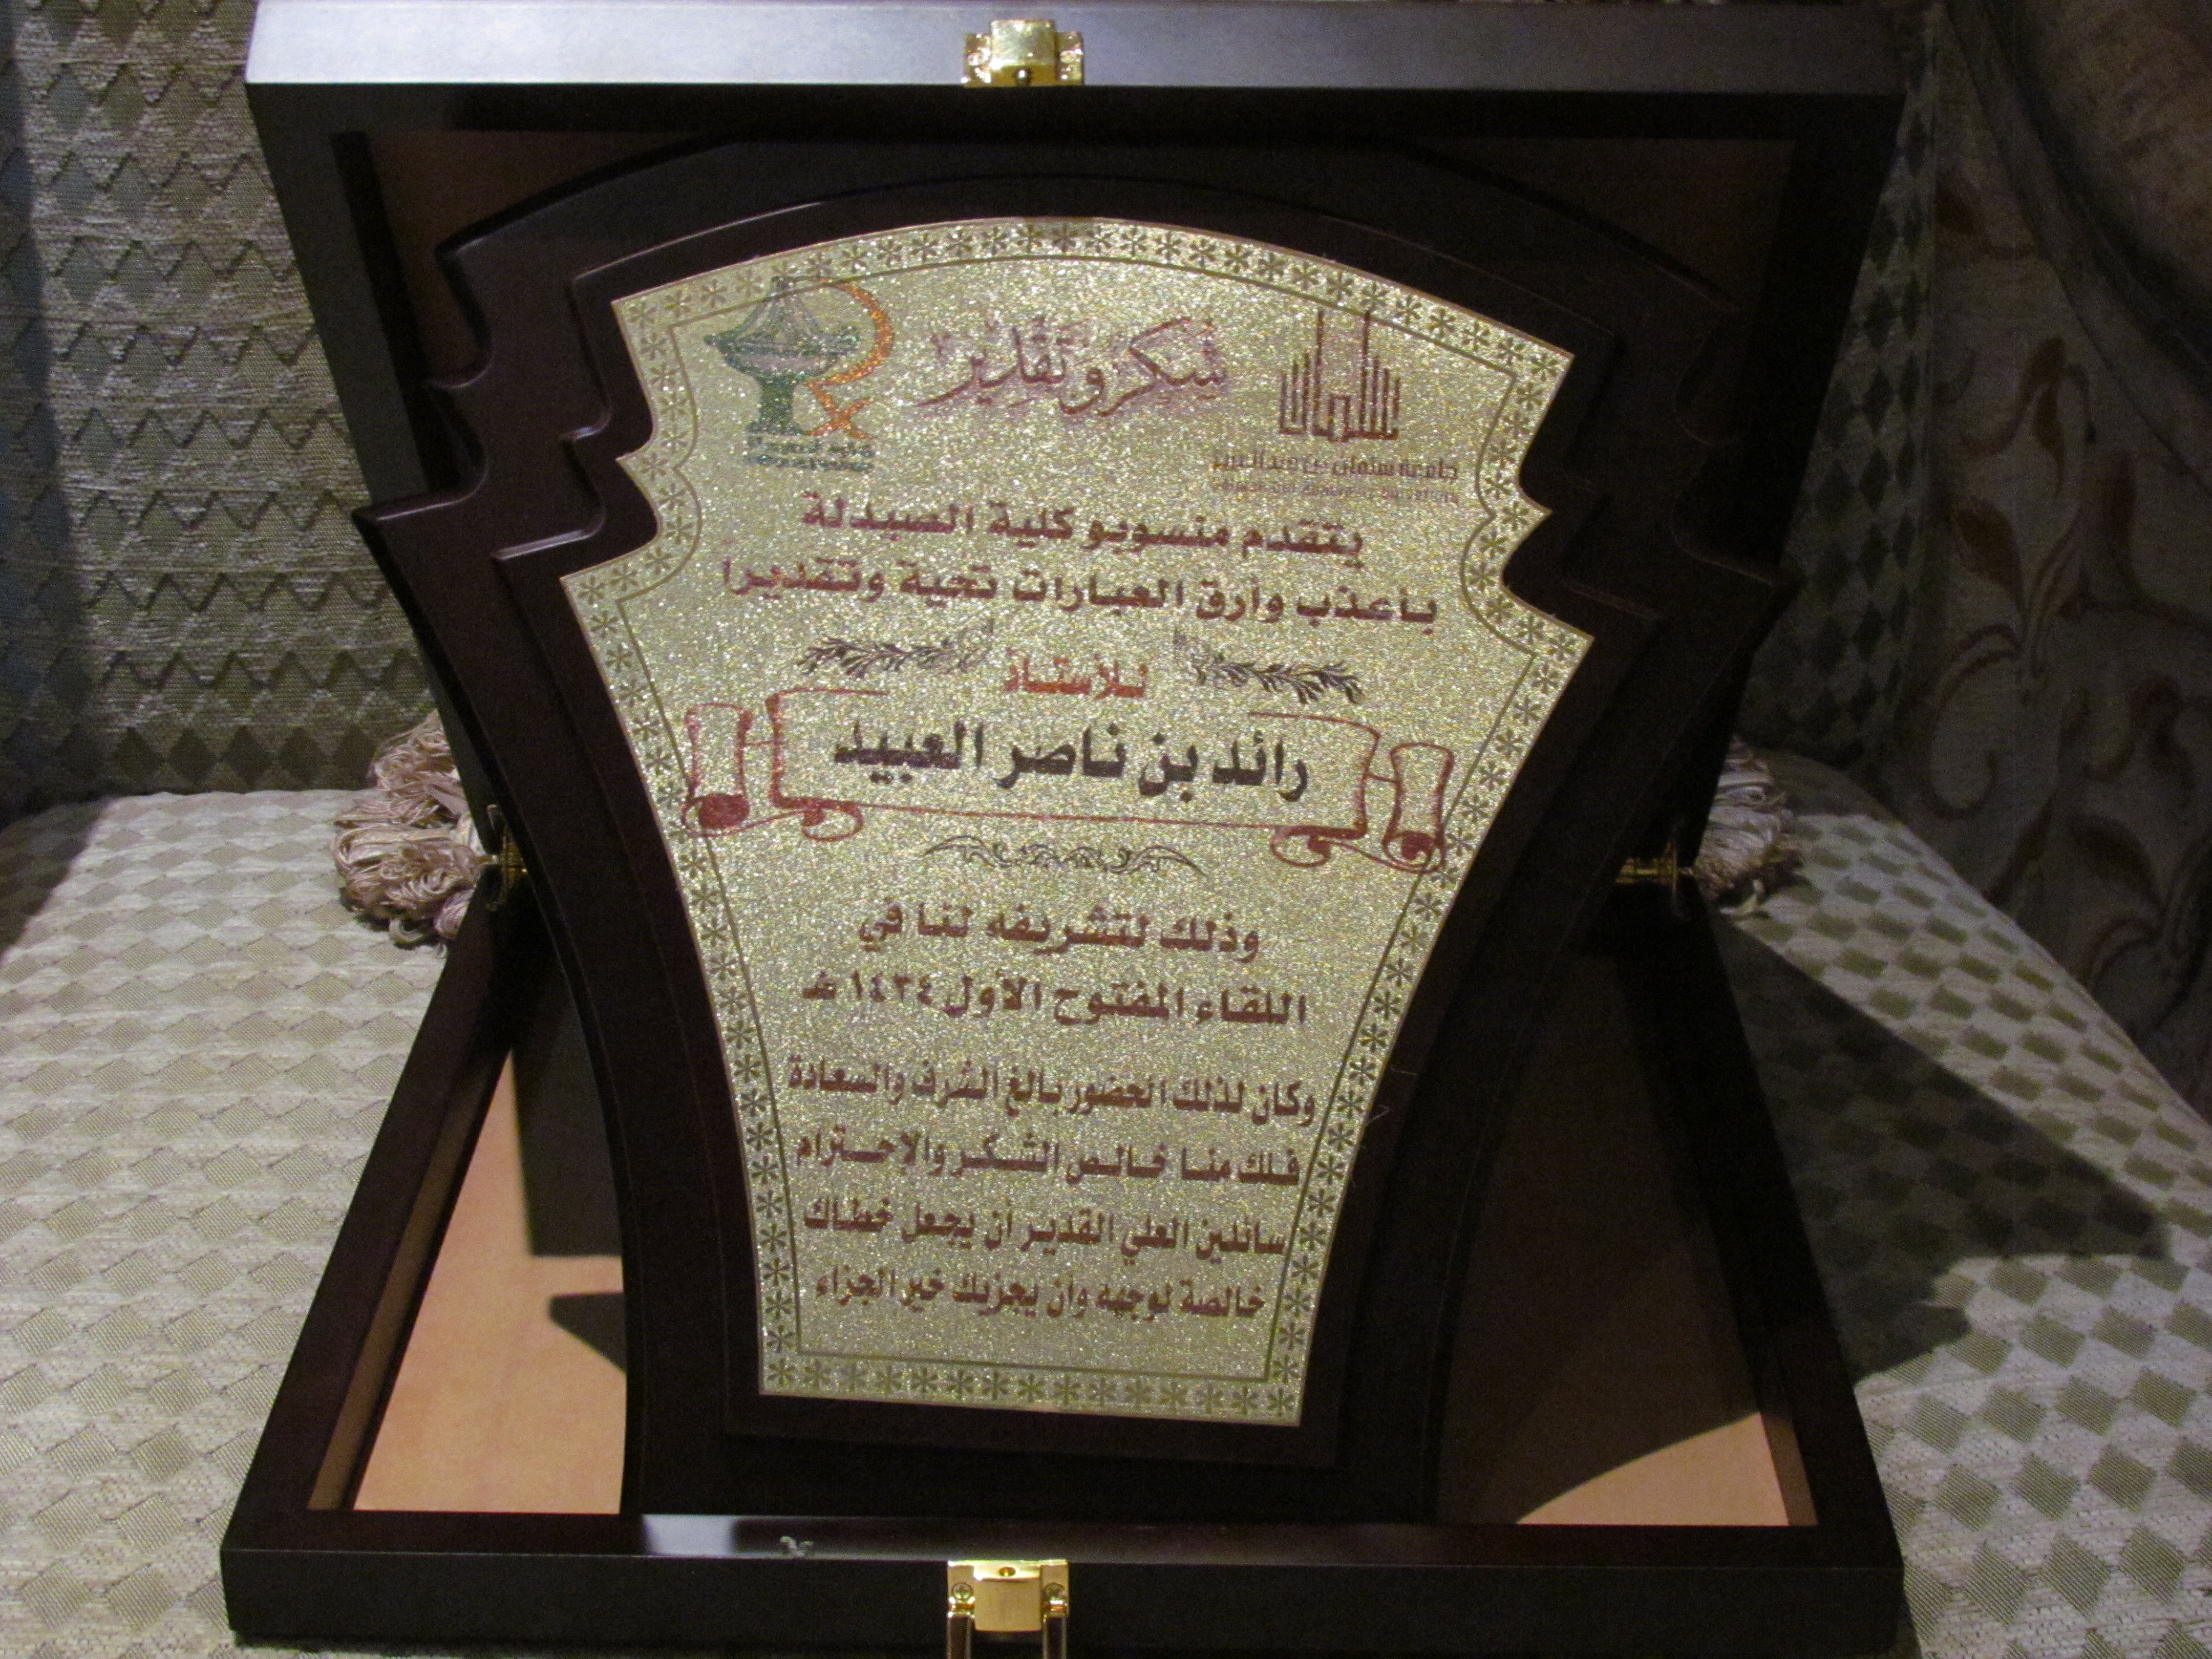 شكر وتقدير
سلمان
جامعة سلمان بن عبدالعزيز
يتقدم منسوبو كلية الصيدلة
باعذب وأرق العبارات تحية وتقديراً
للأستاذ
رائد بن ناصر العبيد
وذلك لتشريفه لنا في
اللقاء المفتوح الأول ١٤٣٤ هـ
وكان لذلك الحضور بالغ الشرف والسعادة
فلك منا خالص الشكر والاحترام
سائلين العلي القدير أن يجعل خطاك
خالصة لوجهه وأن يجزيك خير الجزاء